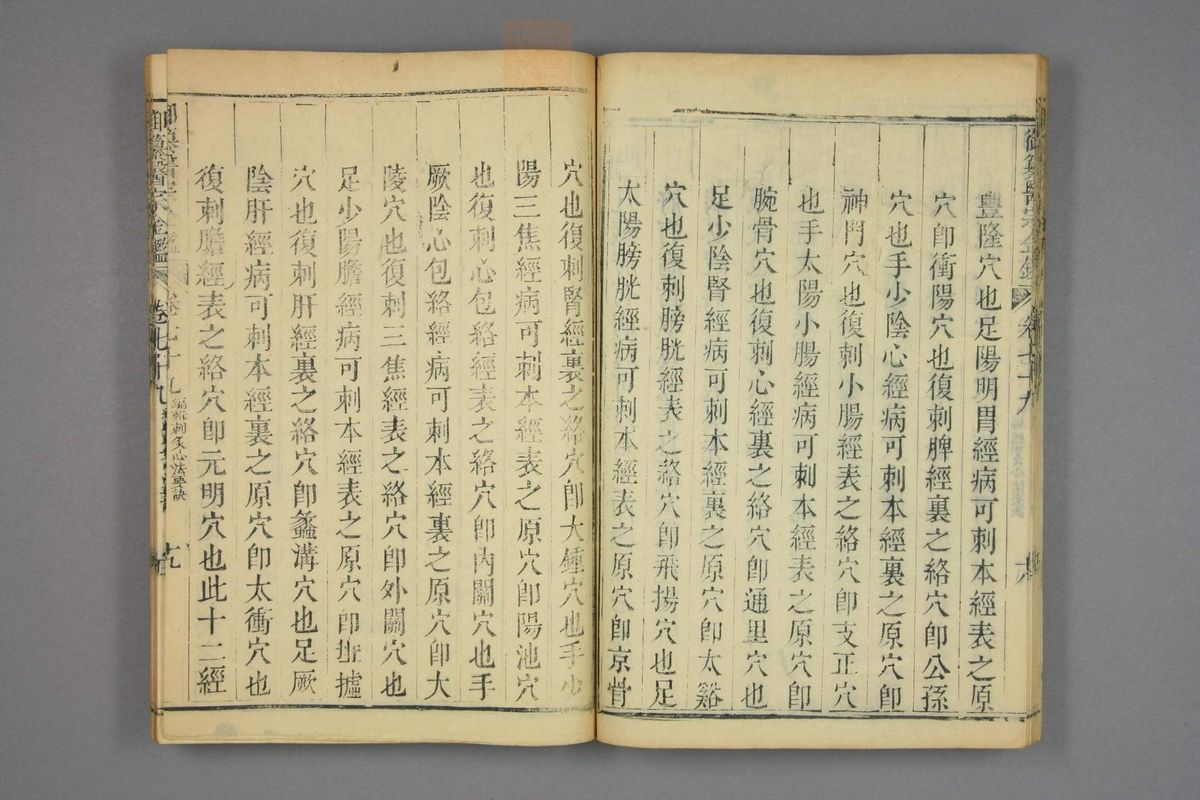 御纂醫宗金鑑 卷七十九 六
豐隆穴也足陽明胃經病可刺本經表之原
穴卽衝陽穴也復刺脾經裏之絡穴卽公孫
穴也手少陰心經病可刺本經裏之原穴卽
神門穴也復刺小腸經表之絡穴卽支正穴
也手太陽小腸經病可刺本經表之原穴卽
腕骨穴也復刺心經裏之絡穴卽通里穴也
足少陰腎經病可刺本經裏之原穴卽太谿
穴也復刺膀胱經表之絡穴卽飛揚穴也足
太陽膀胱經病可刺本經表之原穴卽京骨
穴也復刺腎經裏之絡穴卽大鍾穴也手少
陽三焦經病可刺本經表之原穴卽陽池穴
也復刺心包絡經表之絡穴卽內關穴也手
厥陰心包絡經病可刺本經裏之原穴卽大
陵穴也復刺三焦經表之絡穴卽外關穴也
足少陽膽經病可刺本經表之原穴卽坵墟
穴也復刺肝經裏之絡穴卽蠡溝穴也足厥
陰肝經病可刺本經裏之原穴卽太衝穴也
復刺膽經表之絡穴卽元明穴也此十二經
御纂醫宗金鑑 卷七十九 編輯刺灸心法要訣 九